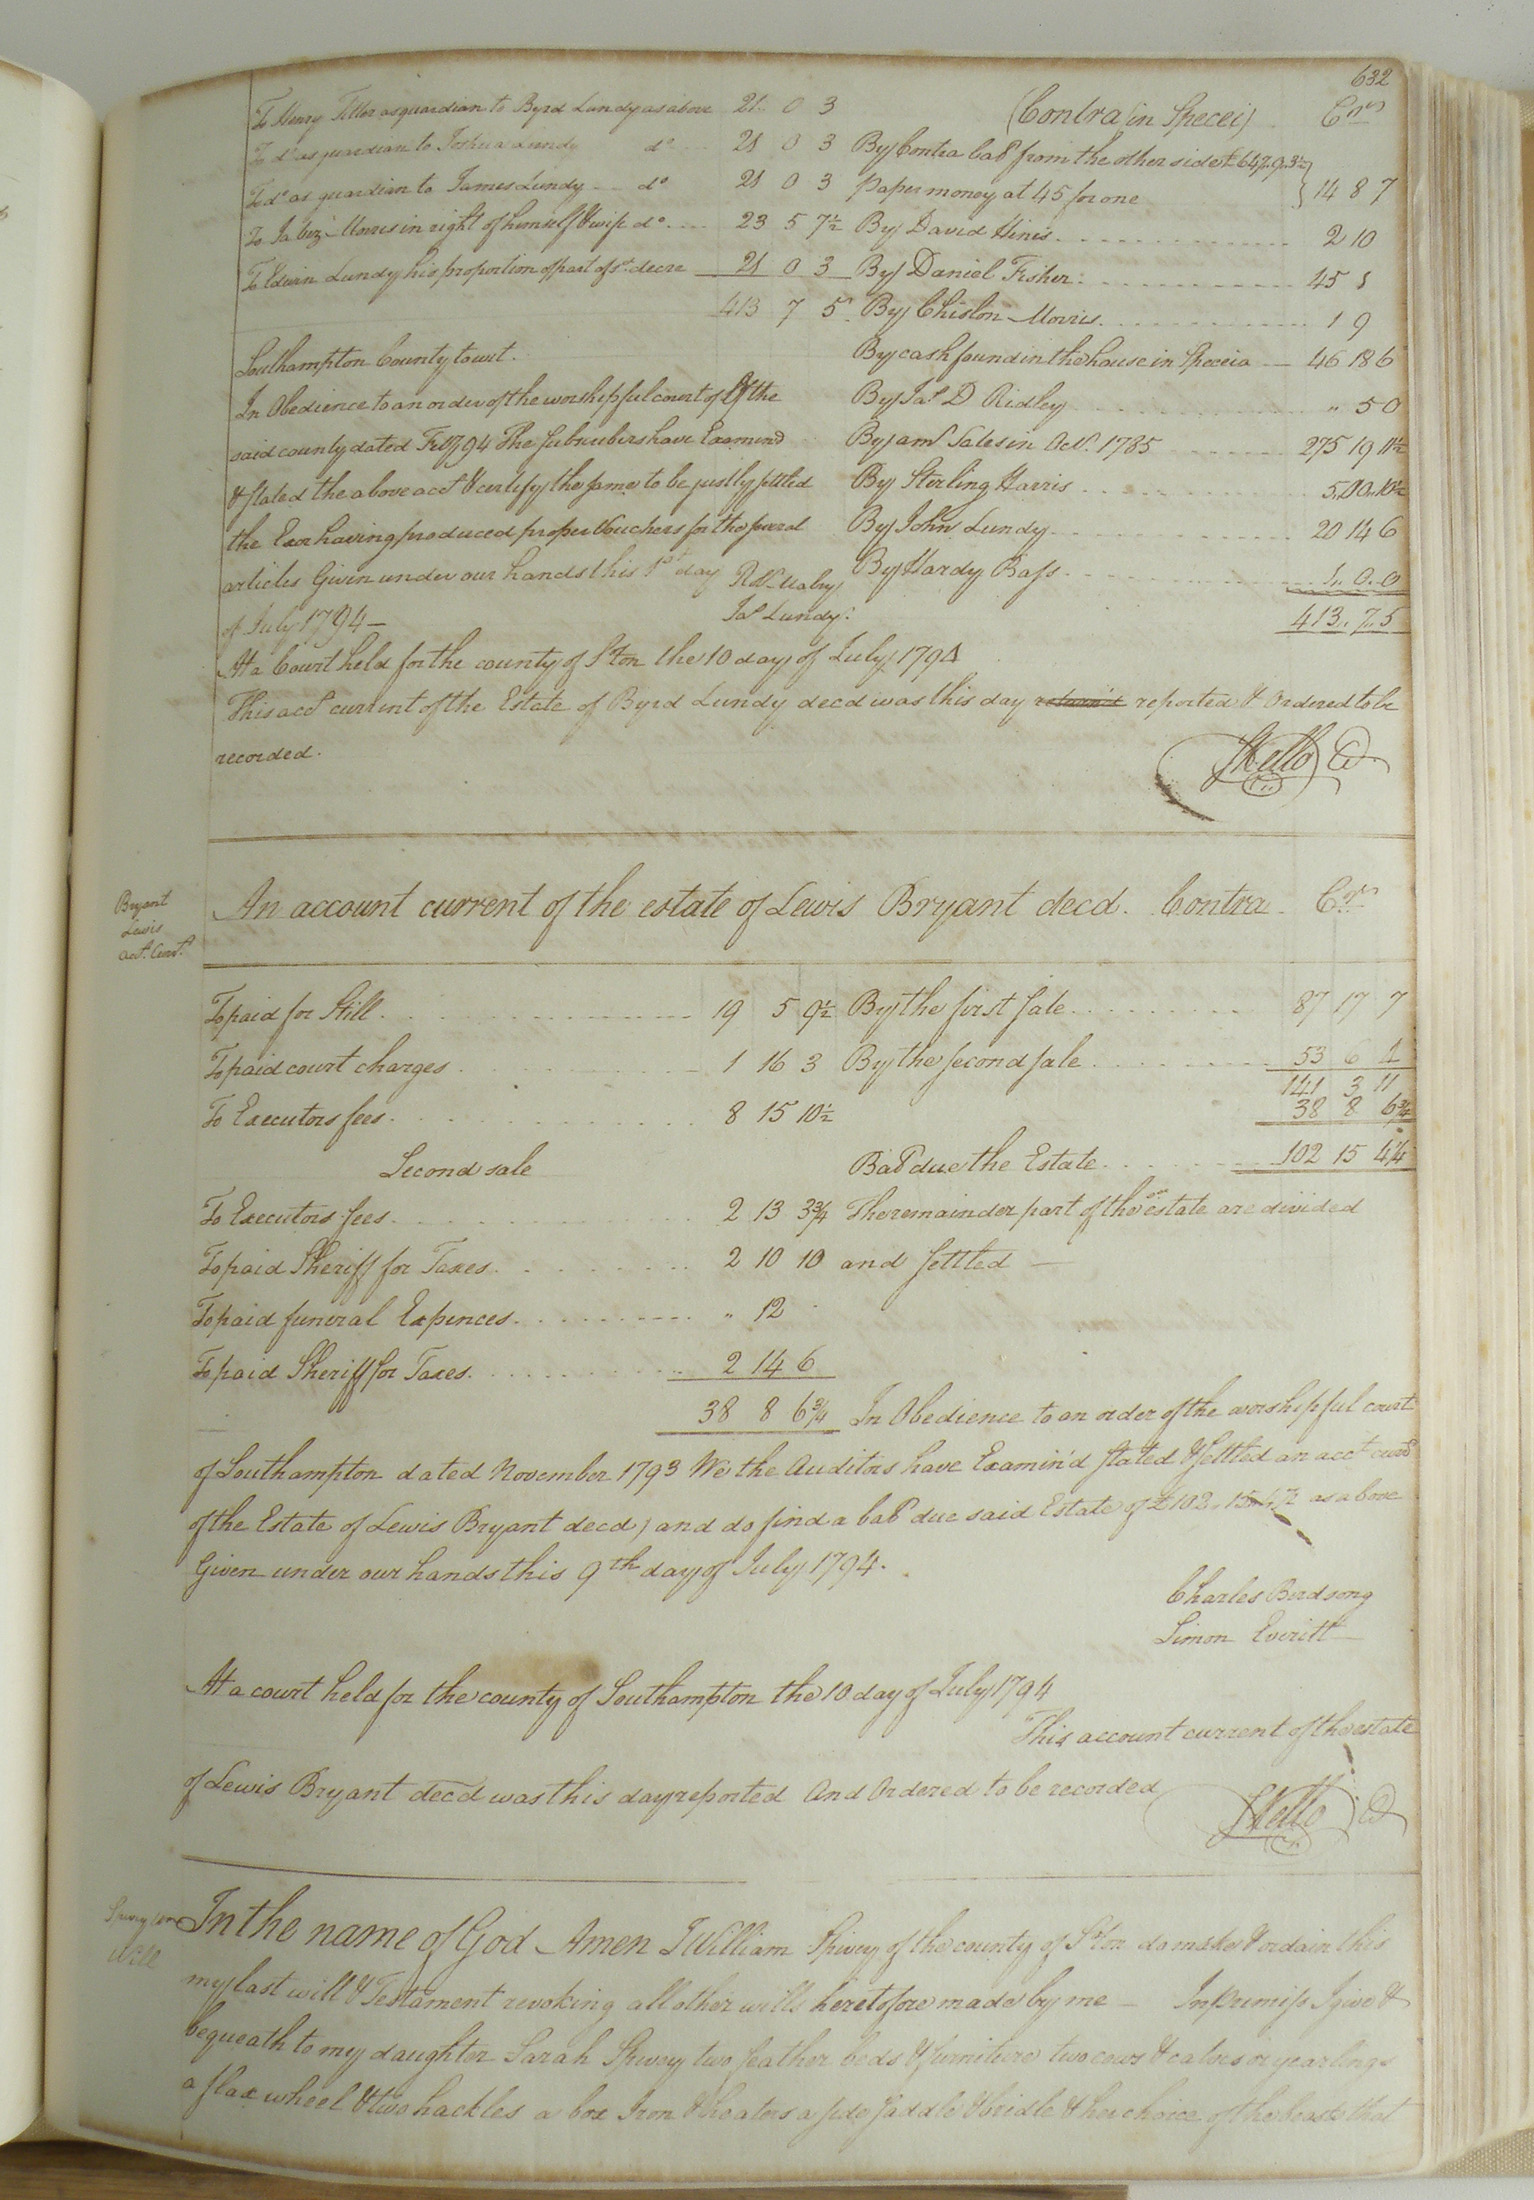 632
To Henry Tiller as guardian to Byrd Lundy as above 21.. 0 3 (Contra in Specei) Crs
To do as guardian to Joshua Lundy do 21 0 3 By Contra bal from the other side £647.9.3½
To do as guardian to James Lundy do 21 0 3 paper money at 45 for one 14 8 7
To Jabez Morris in right of himself & wife do 23 5 7½ By David Hines 2 10
To Edwin Lundy his proportion of part of sd decre 21 0 3 By Daniel Fisher 45 1
413 7 5 By Chislon Morris 1 9
Southampton County towit. By cash found in the house in Speceia 46 18 6
In Obedience to an order of the worshipful court of the By Jas D Ridley " 5 0
said county dated 1794 The Subscribers have Examind By amt Sales in Octr. 1785 275 19 11½
& Stated the above acct & certify the same to be justly settled By Sterling Harris 5.00.10½
the Exor having produced proper Vouchers for the several By John Lundy 20 14 6
articles Given under our hands this 1st day By Hardy Bass 1.. 0.. 0
of July 1794 Jas Lundy. 413.. 7.. 5
At a Court held for the county of Ston the 10 day of July 1794
This acct current of the Estate of Byrd Lundy decd was this day return'd reported & Ordered to be
recorded.
SKello Cl
Bryant
Lewis
Acct. Curt.
An account current of the estate of Lewis Bryant decd. Contra Crs
To paid for Still 19 5 9½ By the first sale 87 17 7
To paid court charges 1 16 3 By the second sale 53 6 4
141 3 11
To Executors fees 8 15 10½ 38 8 6¾
Second sale Bal due the Estate 102 15 4¼
To Executors fees 2 13 3¾ The remainder part of the estate are divided
To paid Sheriff for Taxes 2 10 10 and settled
To paid funeral Expences " 12
To paid Sheriff for Taxes 2 14 6
38 8 6¾ In Obedience to an order of the worshipful court
of Southampton dated November 1793 We the Auditors have Examin'd Stated & Settled an acct curt
of the Estate of Lewis Bryant decd, and do find a bal due said Estate of £102.15.4¼ as above
Given under our hands this 9th day of July 1794.
Charles Birdsong
Simon Everitt
At a court held for the county of Southampton the 10 day of July 1794
This account current of the estate
of Lewis Bryant decd was this day reported And Ordered to be recorded
SKello Cl
Spivey Wm
Will
In the name of God Amen I William Spivey of the county of Ston do make & ordain this
my last will & Testament revoking all other wills heretofore made by me Inprimiss I give &
bequeath to my daughter Sarah Spivey two feather beds & furniture two cows & calves or yearlings
a flax wheel & two hackles a box Iron & heaters a side saddle & bridle & her choice of the beasts that